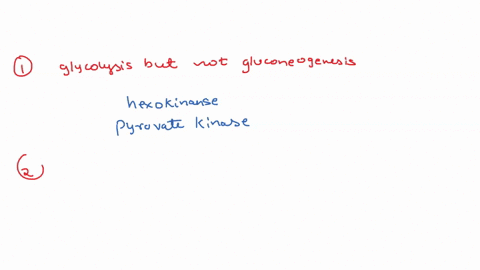 1 glycolysis but not gluconeogenesis
hexokinanse
pyrovate kinase
2